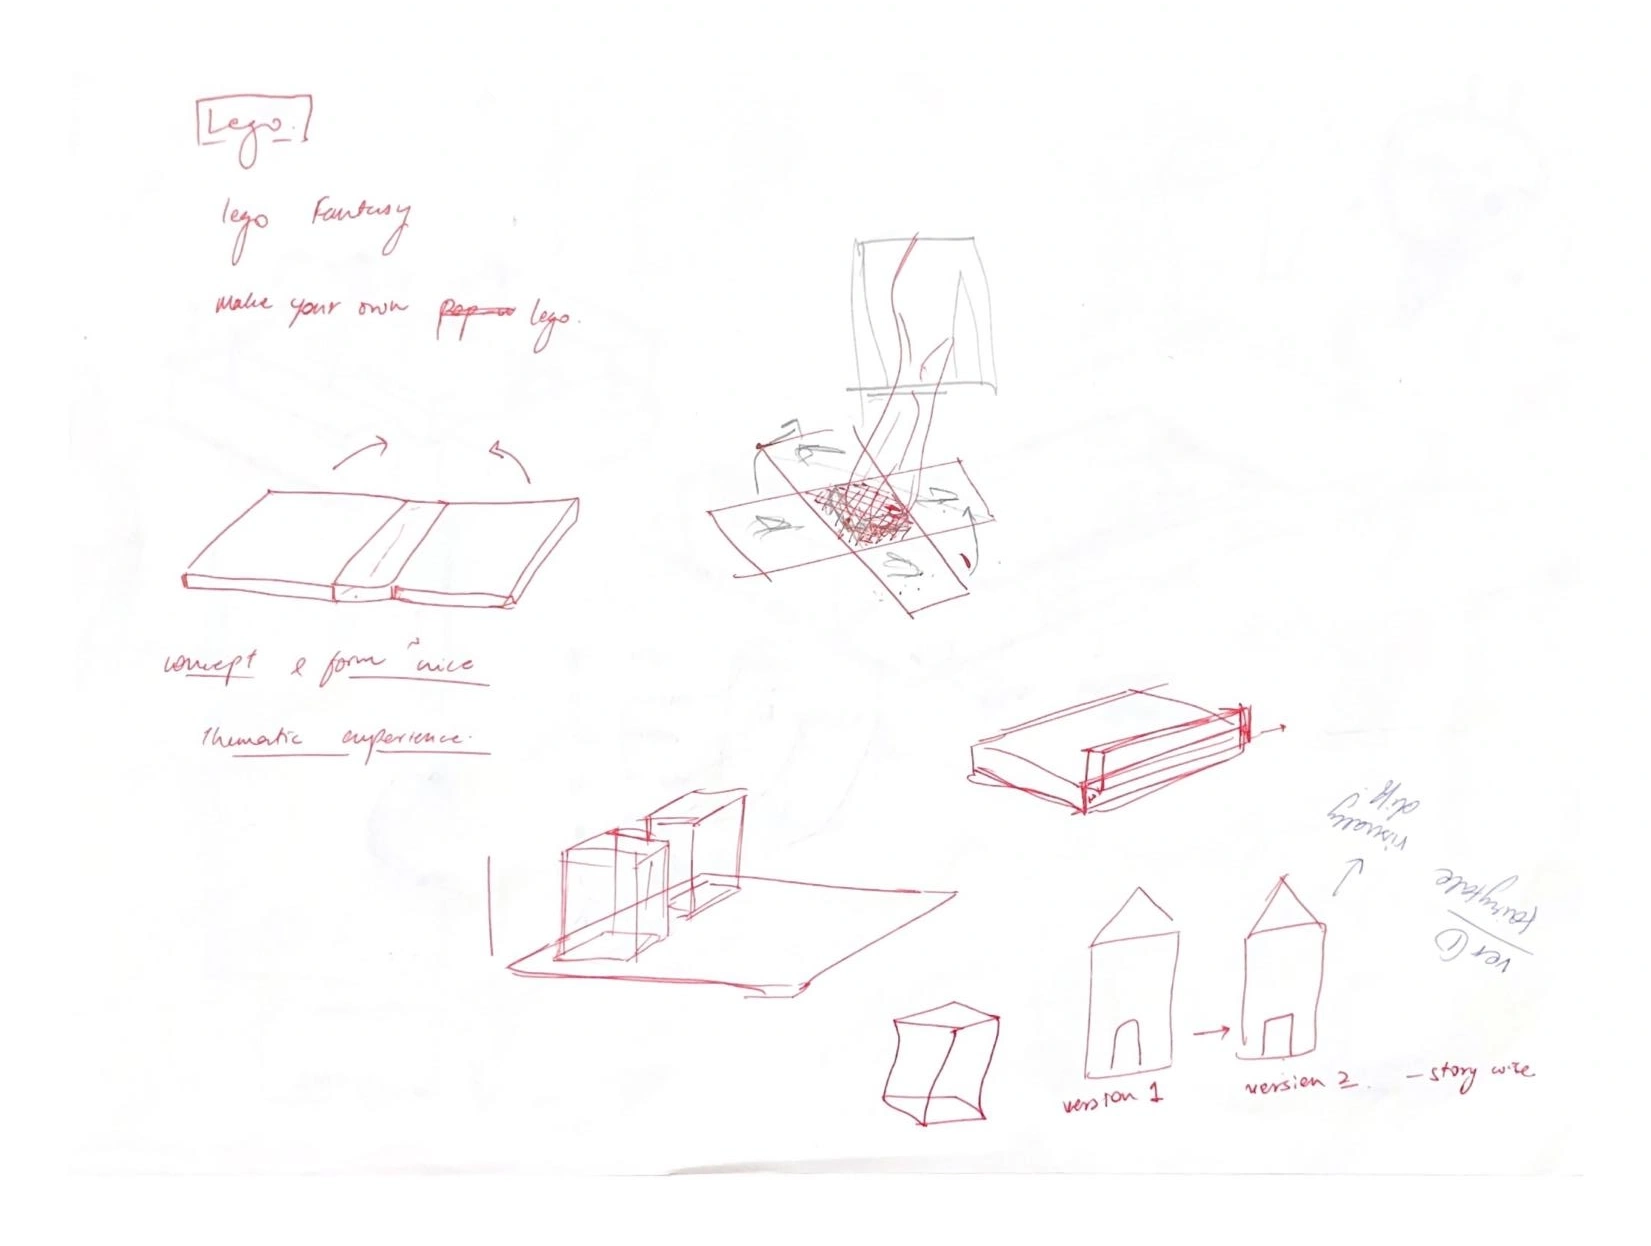 Lego.
lego Fantasy
Make your own lego.
concept & form nice
thematic experience.
visually
diff!
ver ①
fairytale
version 1
version 2. - story wise